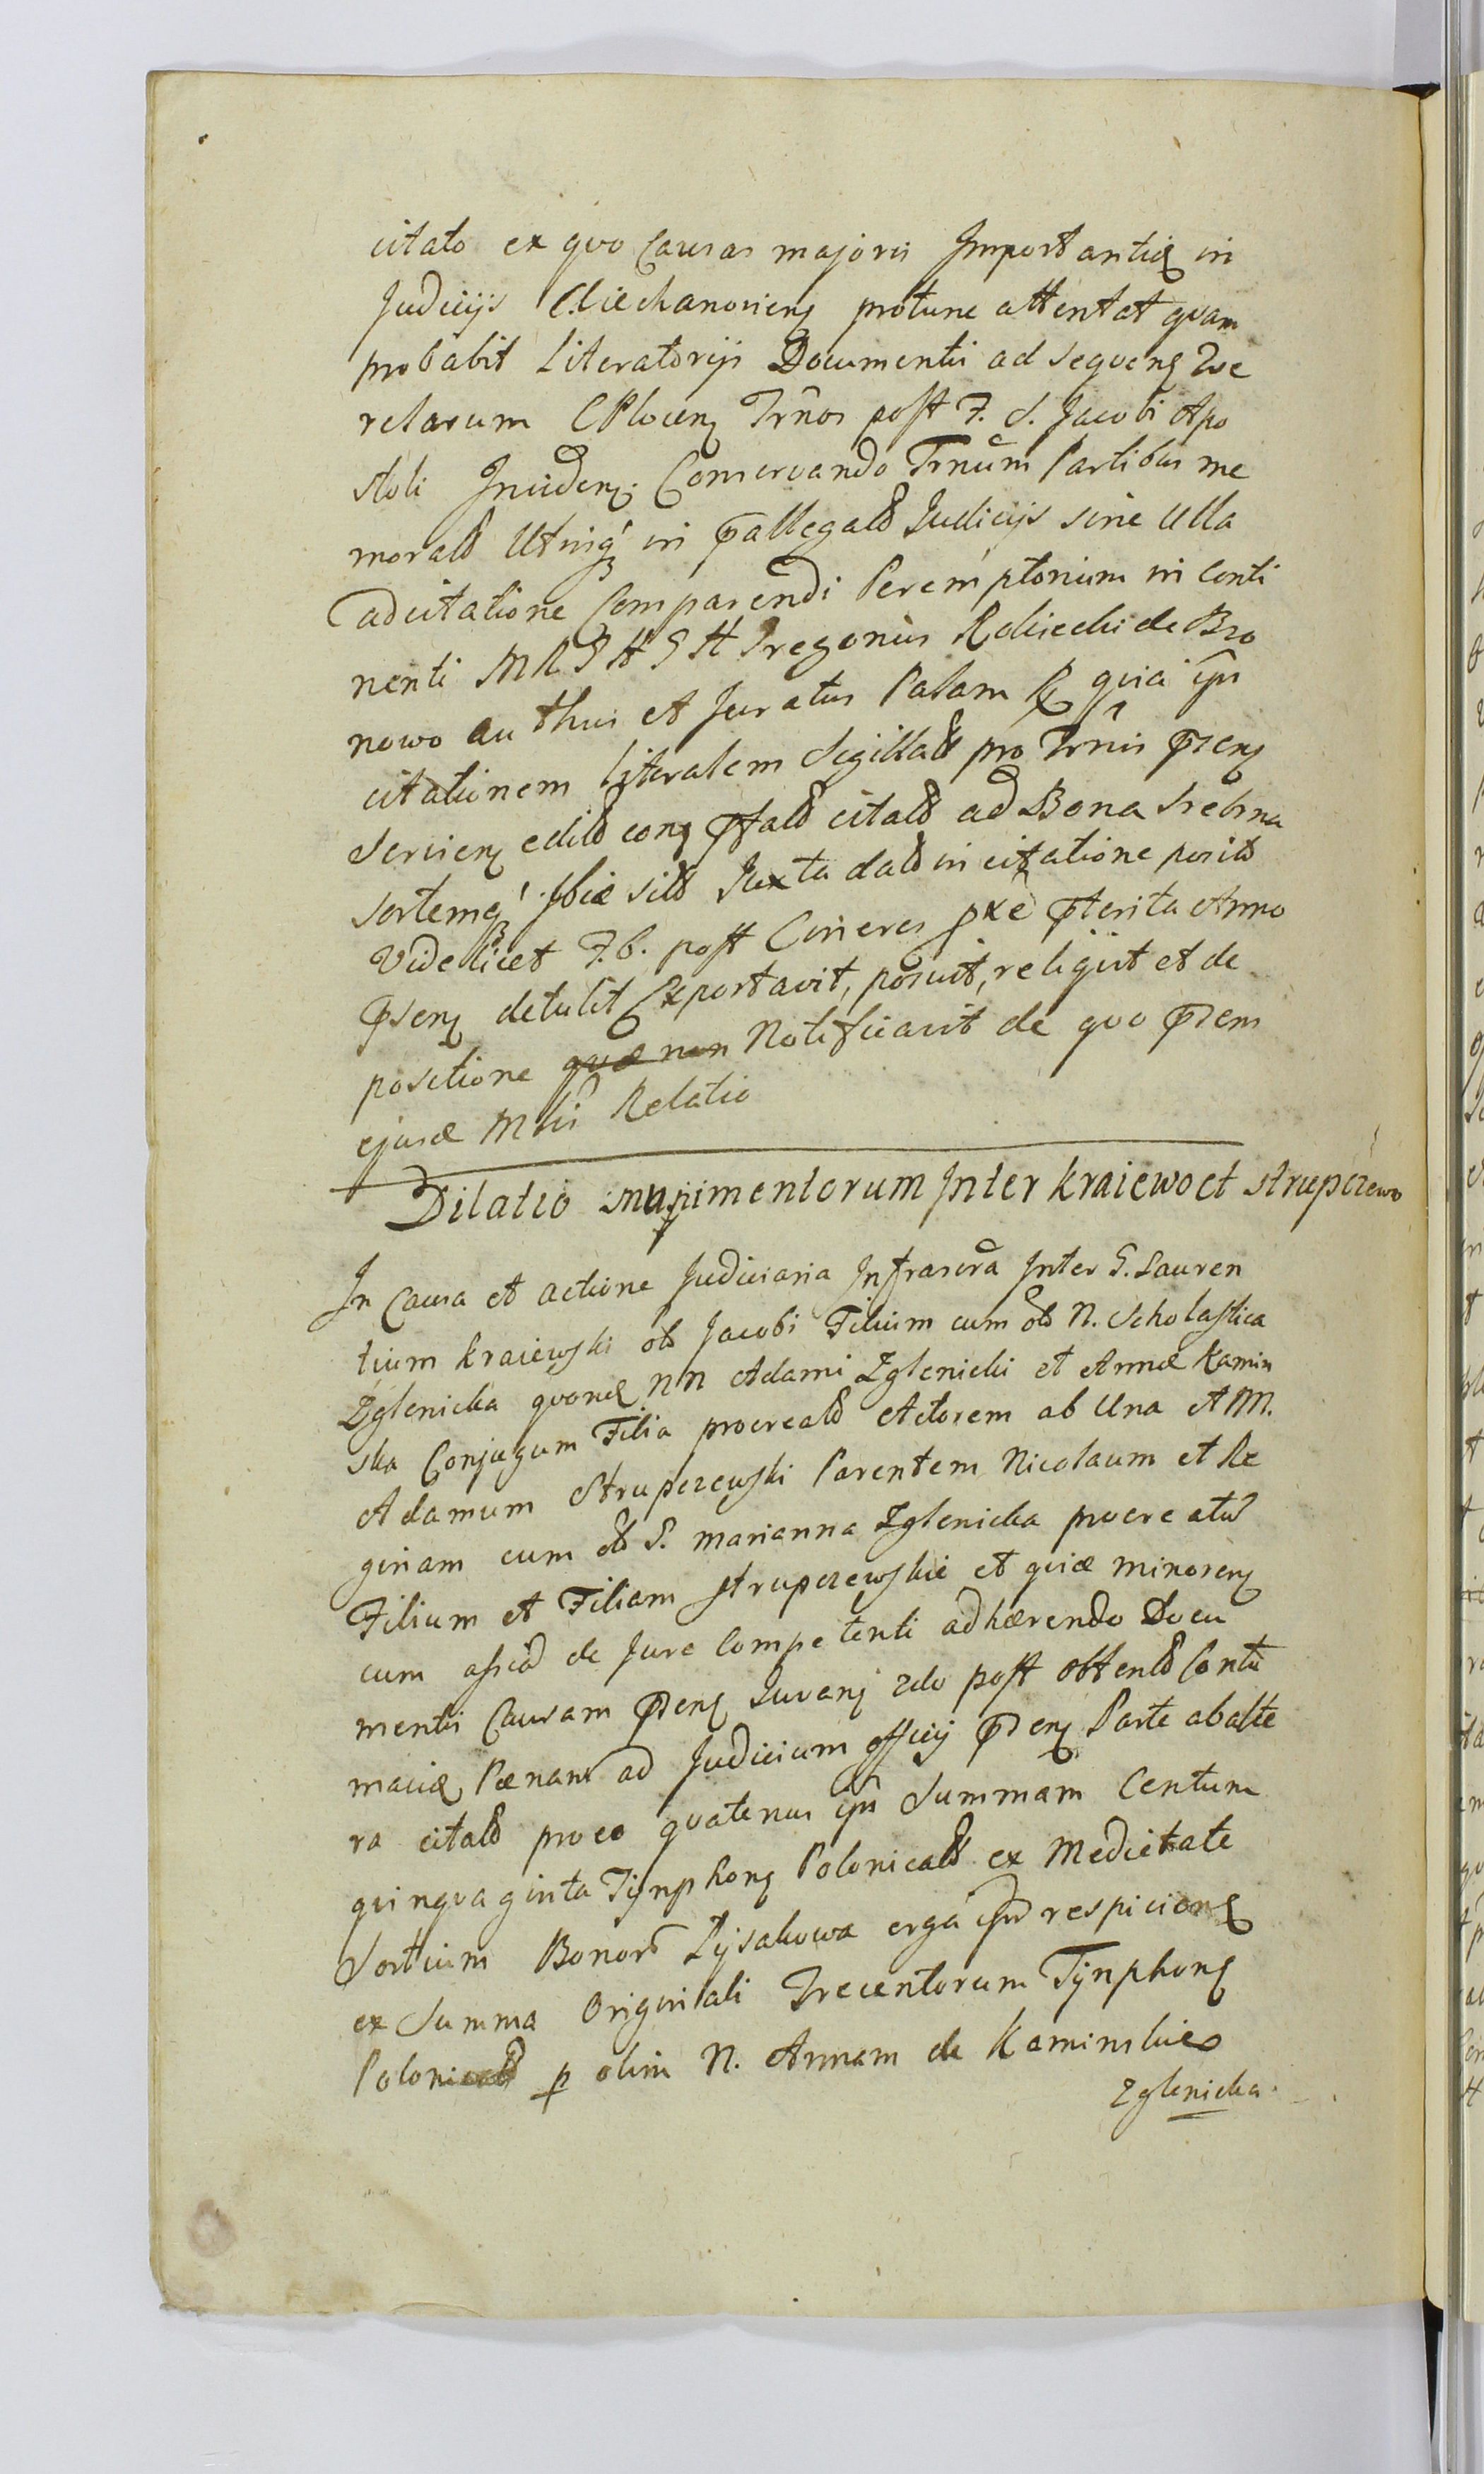 citato ex quo Causas majoris Importantiæ in
Judicijs Ciechanoviens protunc attentat quam
probabit Literatorijs Documentis ad sequens Que
relarum CPlocens Trnos post F. S. Jacobi Apo
stoli Inciden. Conservando Trnum Partibus me
morat Utrinq in pallegat Judicijs sine Ulla
adcitatione Comparendi Peremptorium in Conti
nenti MRPHSH Gregorius Rokicki de Bro
nowo authus et Juratus Palam R quia ipse
citationem literalem Sigillat pro Trnis przens
Servien edit cong pfat citat ad Bona Srebrna
sortemq Ibiæ sit Juxta dat in citatione posit
Videlicet F. 6. post Cineres pxe pterita Anno
psens detulit Exportavit, posuit, reliqüt et de
positione quæ non Notificavit de quo przens
ejusd Mlis Relatio
Dilatio munimentorum Inter Kraiewo et Strupczewo
In Causa et actione Judiciaria Infrascra Inter G. Lauren
tium Kraiewski ol Jacobi Filium cum ol N. Scholastica
Zglenicka quond NN Adami Zglenicki et Annæ Kamin
ska Conjugum Filia procreat Actorem ab Una A M.
Adamum Strupczewski Parentem Nicolaum et Re
ginam cum ol G. Marianna Zglenicka procreatus
Filium et Filiam Strupczewskie et quidem minorens
cum assia de Jure Competenti adhærendo Docu
mentis Causam przens Juvan zdo post obtent Contu
maciæ Pænam ad Judicium officij przens Parte ab alte
ra citat pro eo quatenus ipsi Summam Centum
quinquaginta Tynphons Polonicat ex Medietate
Sortium Bonor Lysakowa erga ips respiciens
ex Summa Originali Trecentorum Tynphons
Polonicat p olim N. Annam de Kaminskie
Zglenicka